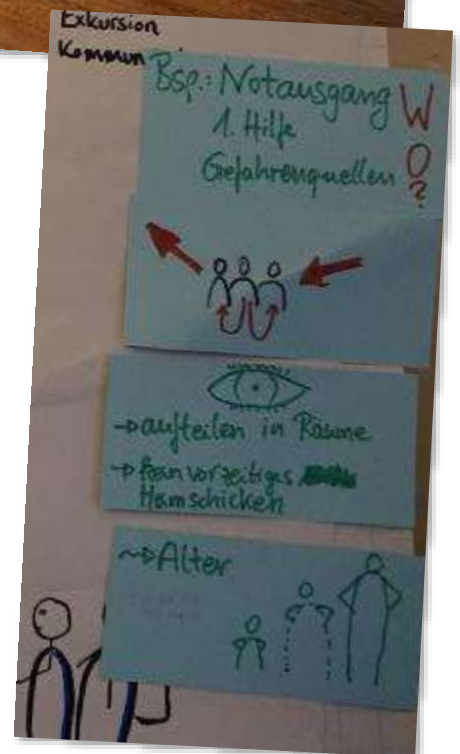 Exkursion
Kommun
Bsp.: Notausgang
1. Hilfe
Gefahrenquellen
WO?
→ aufteilen in Räume
→ kein vorzeitiges
Heimschicken
~> Alter